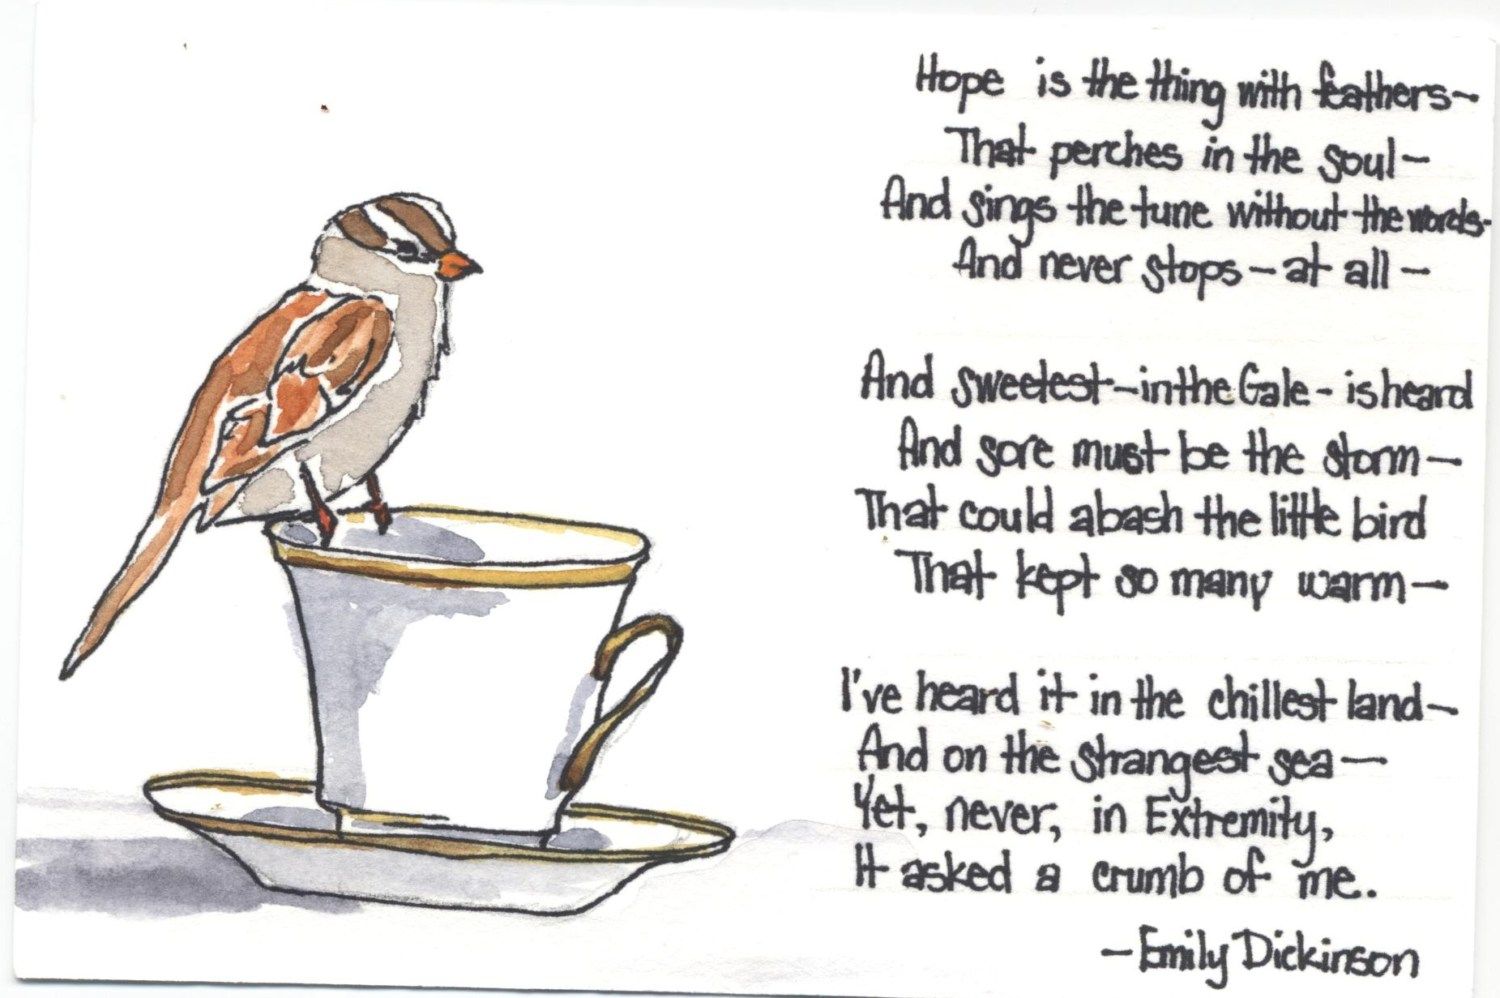 Hope is the thing with feathers—
That perches in the soul—
And sings the tune without the words-
And never stops—at all—
And sweetest—in the Gale- is heard
And sore must be the storm—
That could abash the little bird
That kept so many warm—
I've heard it in the chillest land—
And on the strangest sea—
Yet, never, in Extremity,
It asked a crumb of me.
—Emily Dickinson